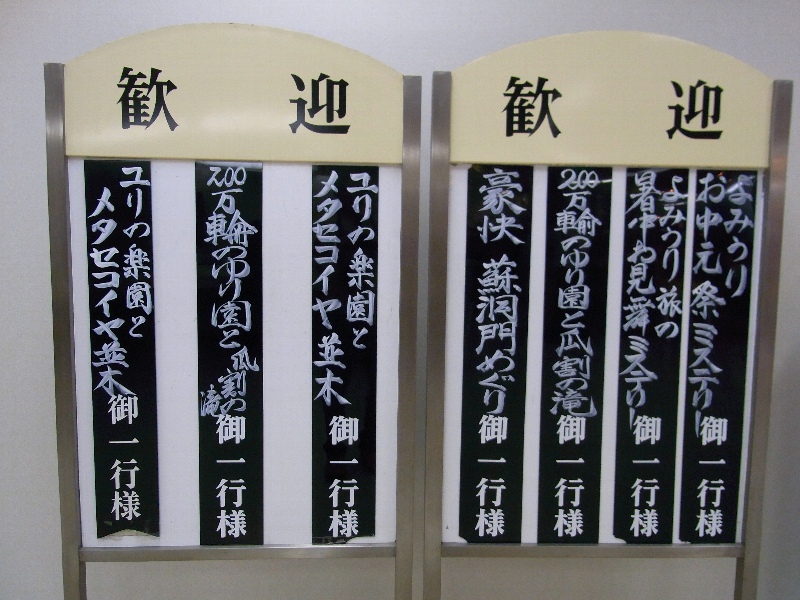 歓迎
ユリの楽園と
メタセコイヤ並木
御一行様
200万輪のゆり園と瓜割の滝
御一行様
ユリの楽園と
メタセコイヤ並木
御一行様
歓迎
よみうり
お中元祭ミステリー
御一行様
よみうり旅の
暑中お見舞ミステリー
御一行様
200万輪のゆり園と瓜割の滝
御一行様
豪快 蘇洞門めぐり
御一行様